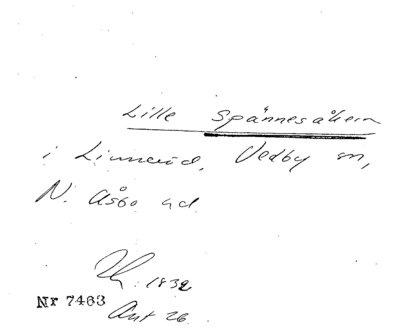 Lille Spännesåkern
i Linneröd, Vedby sn,
N. Åsbo hd.
1832
Nr 7463
Akt 26.